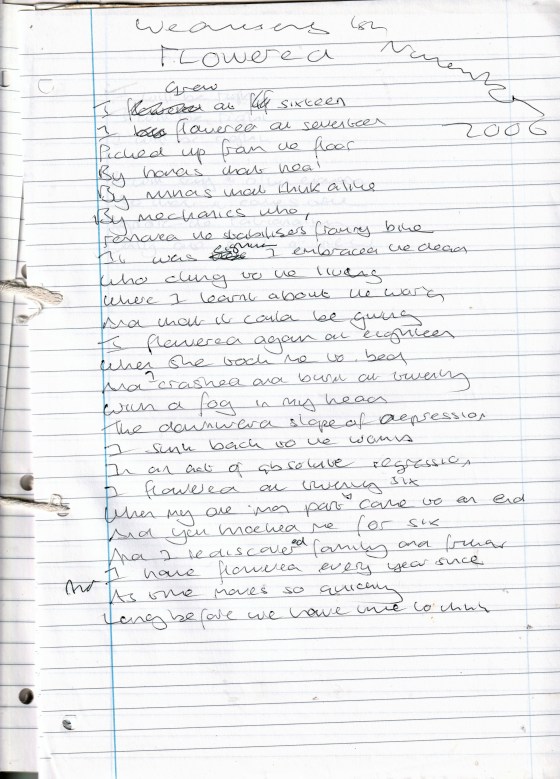 Wednesday 1st
FLOWERED
November
2006
Grew
I flowered at sixteen
I flowered at seventeen
Picked up from the floor
By hands that heal
By minds that think alike
By mechanics who,
removed the stabilisers from my bike
It was eighteen I embraced the dead
Who clung to the living
Where I learnt about the world
And that it could be giving
I flowered again at eighteen
When she took me to bed
And I crashed and burnt at twenty
With a fog in my head
The downward slope of depression
I sunk back to the womb
In an act of absolute regression
I flowered at twenty six
When my one man party came to an end
And you knocked me for six
And I rediscovered family and friends
I have flowered every year since
And
As time moves so quickly
Long before we have time to think